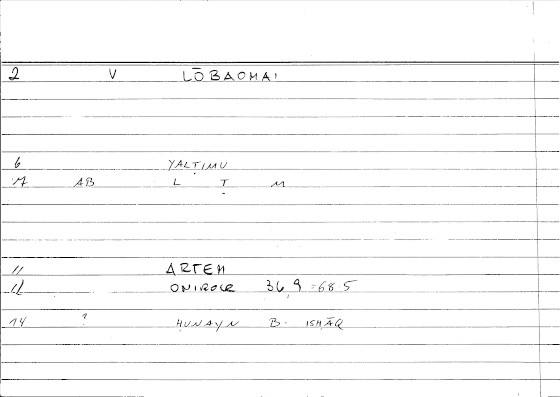 2 V LŌBAOMAI
6 YALTIMU
17 AB L Ṭ M
11 ARTEM
12 ONIROCR 36,9 = 685
14 ? HUNAYN B. ISHĀQ